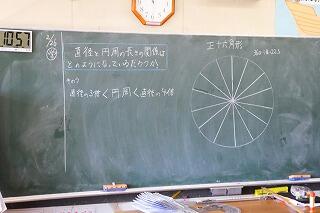 1057
2/26
直径と円周の長さの関係は
どのようになっているだろうか
直径の3倍<円周<直径の4倍
正十六角形
360÷16=22.5